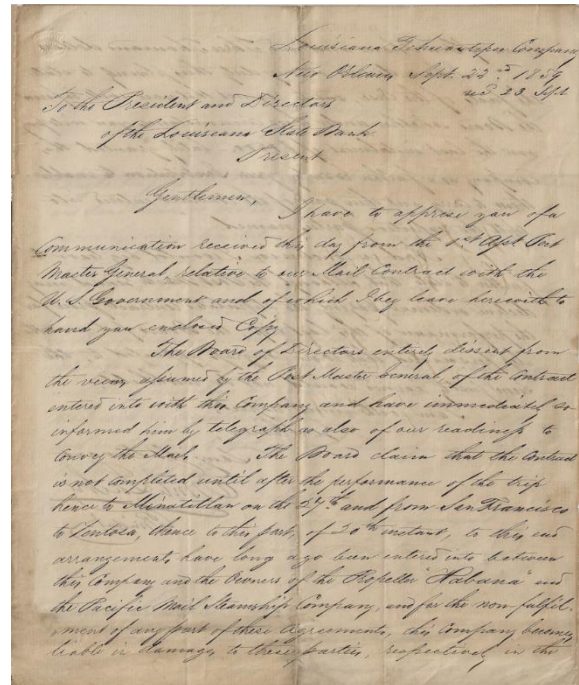 Louisiana Tehuantepec Company
New Orleans Sept. 22nd 1859
23 Sept
To the President and Directors
of the Louisiana State Bank
Present
Gentlemen,
I have to apprise you of a
Communication received this day from the 1st Asst Post
Master General, relative to our Mail Contract with the
U. S. Government and of which I beg leave herewith to
hand you enclosed Copy
The Board of Directors entirely dissent from
the views assumed by the Post Master General of the Contract
entered into with this Company and have immediately so
informed him by telegraph as also of our readiness to
Convey the Mails. The Board claim that the Contract
is not completed until after the performance of the trip
hence to Minatitlan on the 27th and from San Francisco
to Ventosa, thence to this port, of 20th instant, to this end
arrangements have long ago been entered into between
this Company and the Owners of the Propeller Habana and
the Pacific Mail Steamship Company, and for the non-fulfil-
-ment of any part of these Agreements, this Company becomes
liable in damages to these parties, respectively, in the